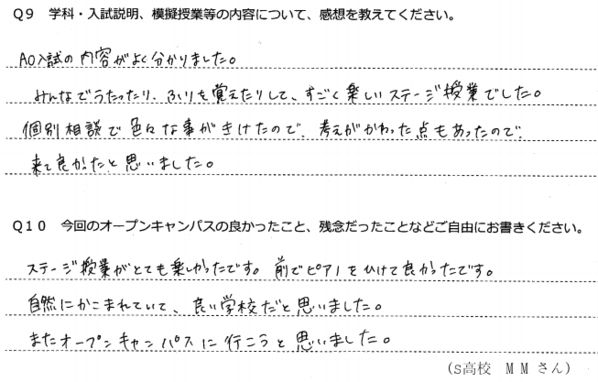 Q9 学科・入試説明、模擬授業等の内容について、感想を教えてください。
AO入試の内容がよく分かりました。
みんなでうたったり、ふりを覚えたりして、すごく楽しいステージ授業でした。
個別相談で色々な事がきけたので、考えがかわった点もあったので、
来て良かったと思いました。
Q10 今回のオープンキャンパスの良かったこと、残念だったことなどご自由にお書きください。
ステージ授業がとても楽しかったです。前でピアノをひけて良かったです。
自然にかこまれていて、良い学校だと思いました。
またオープンキャンパスに行こうと思いました。
(S高校 MMさん)